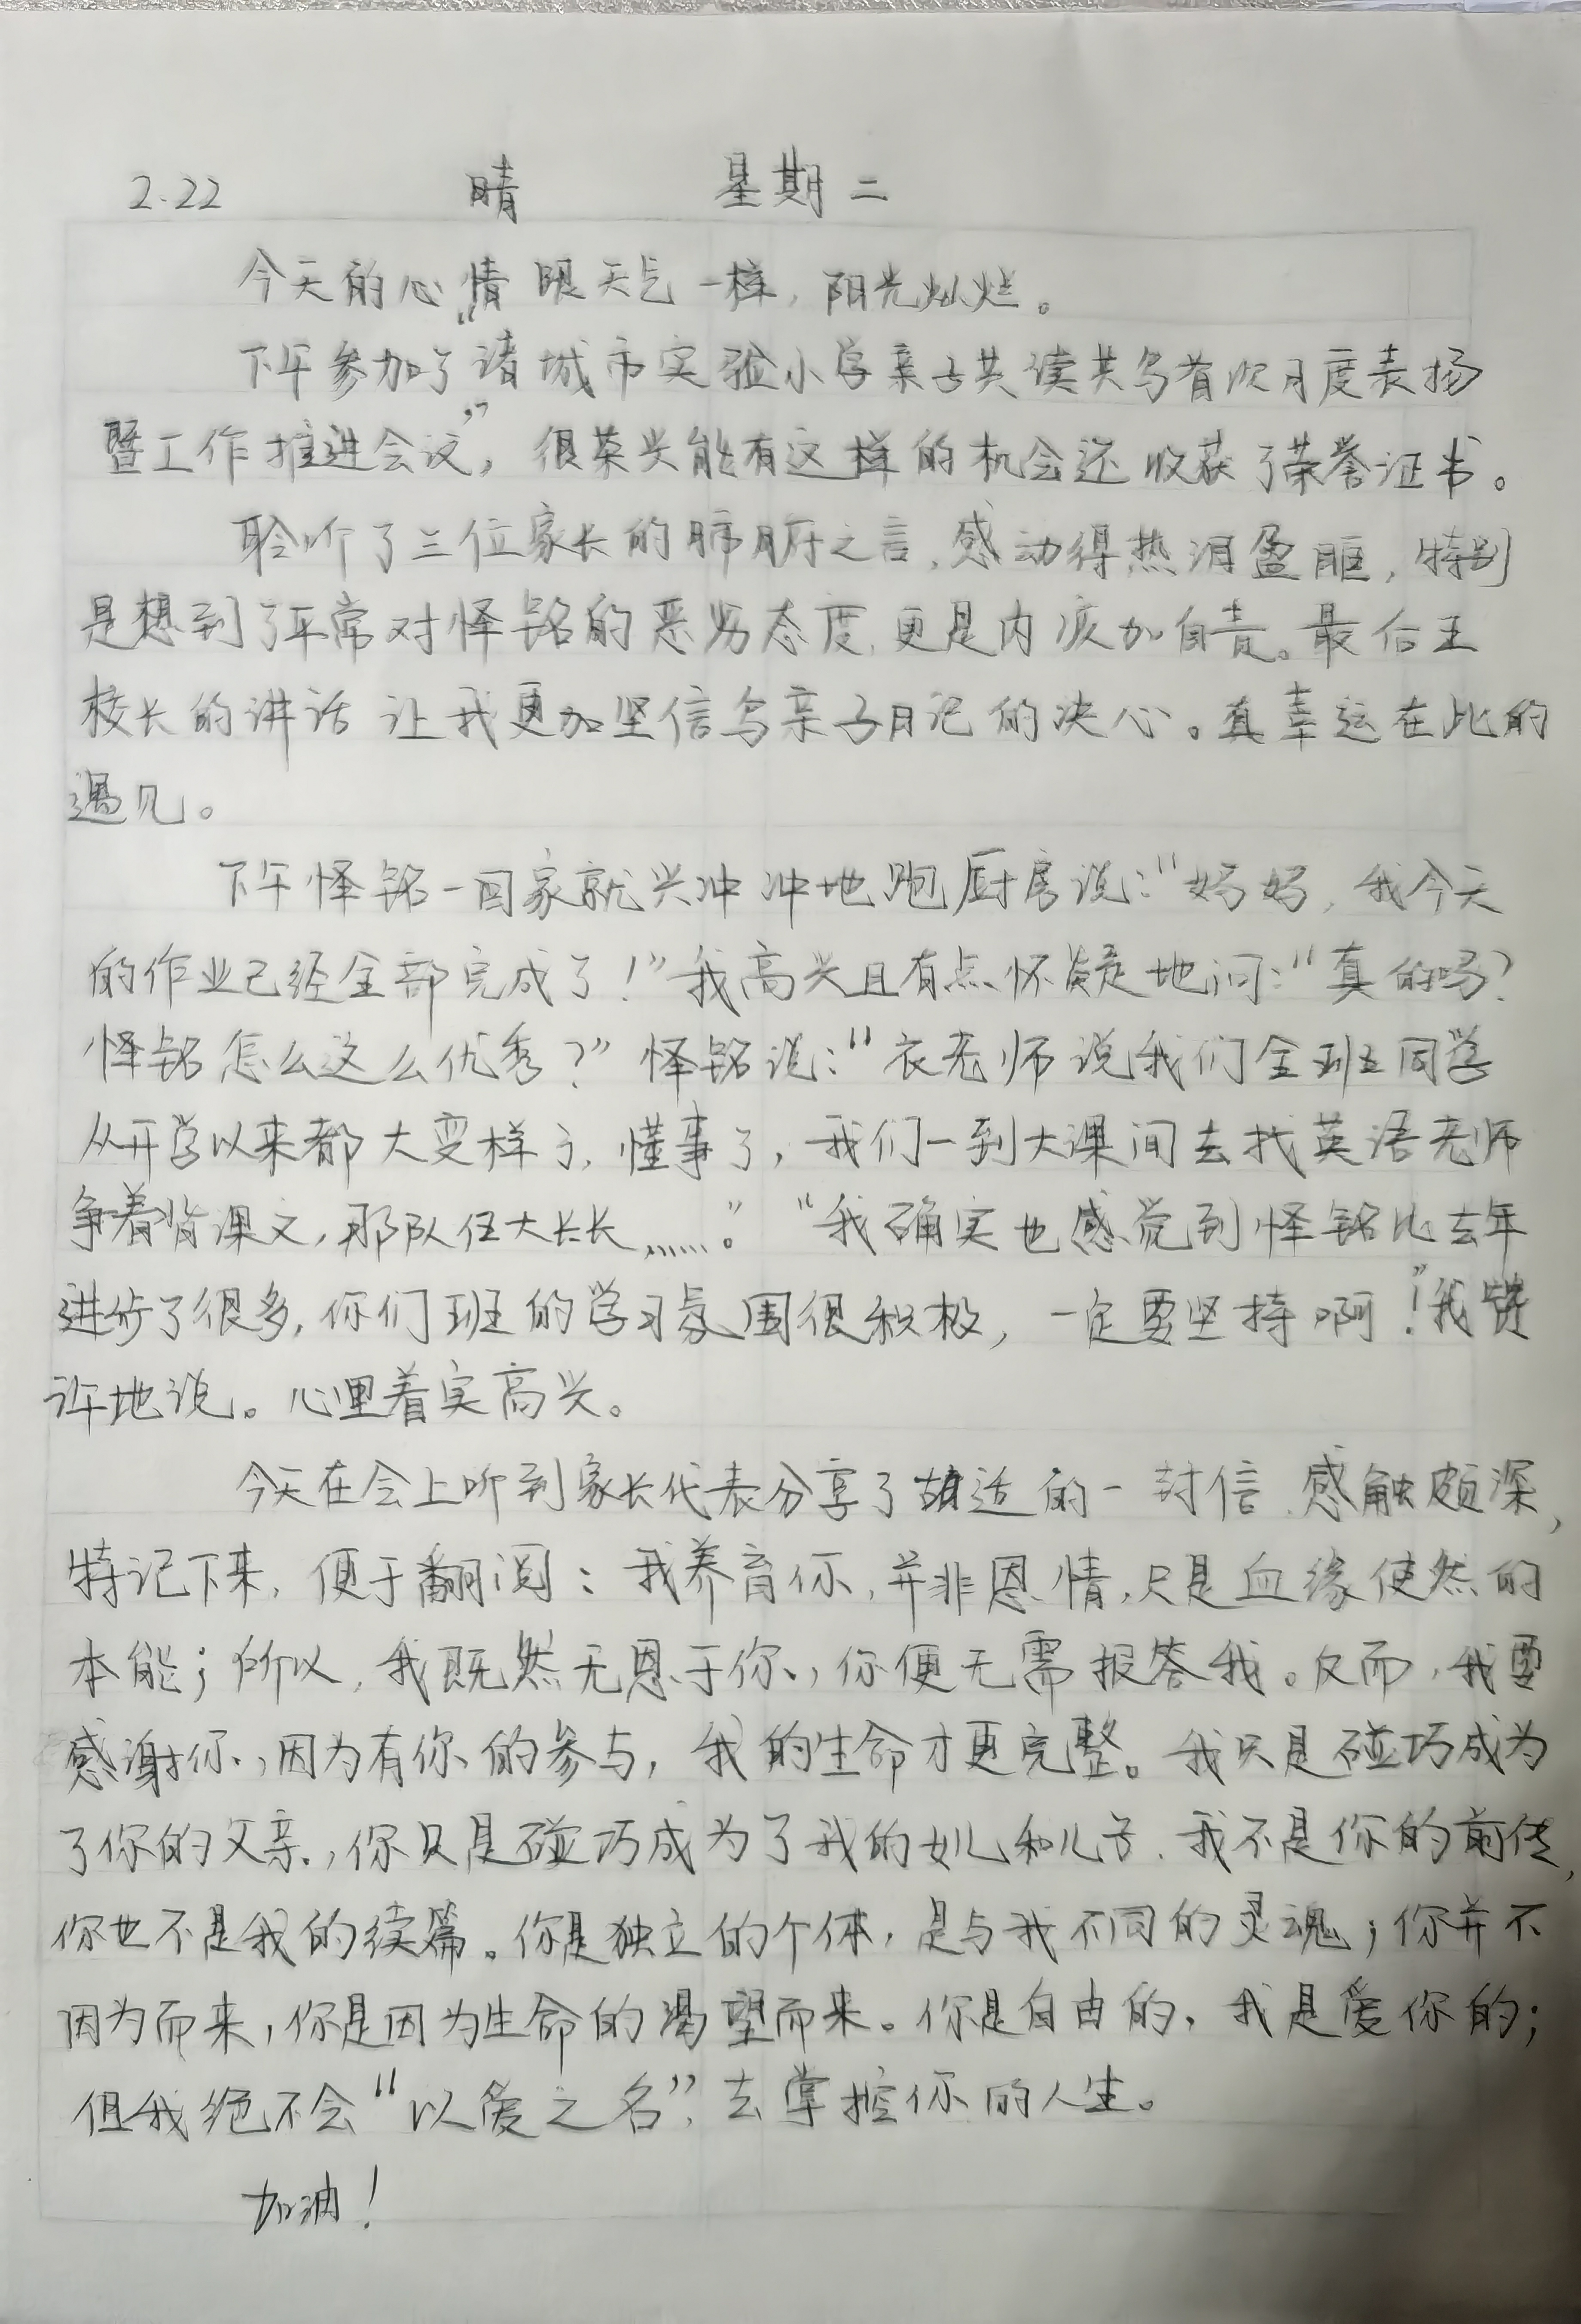 2.22 晴 星期二
今天的心情跟天气一样，阳光灿烂。
下午参加了“诸城市实验小学亲子共读共写首次月度表扬
暨工作推进会议”，很荣兴能有这样的机会还收获了荣誉证书。
聆听了三位家长的肺腑之言，感动得热泪盈眶，特别
是想到了平常对怿铭的恶劣态度，更是内疚加自责。最后王
校长的讲话让我更加坚信写亲子日记的决心。真幸运在此的
遇见。
下午怿铭一回家就兴冲冲地跑厨房说：“妈妈，我今天
的作业已经全部完成了！”我高兴且有点怀疑地问：“真的吗？
怿铭怎么这么优秀？”怿铭说：“衣老师说我们全班同学
从开学以来都大变样了，懂事了，我们一到大课间去找英语老师
争着背课文，那队伍大长长……。”“我确实也感觉到怿铭比去年
进步了很多，你们班的学习氛围很积极，一定要坚持啊！”我赞
许地说。心里着实高兴。
今天在会上听到家长代表分享了胡适的一封信，感触颇深，
特记下来，便于翻阅：我养育你，并非恩情，只是血缘使然的
本能；所以，我既然无恩于你，你便无需报答我。反而，我要
感谢你，因为有你的参与，我的生命才更完整。我只是碰巧成为
了你的父亲，你只是碰巧成为了我的女儿和儿子，我不是你的前传，
你也不是我的续篇。你是独立的个体，是与我不同的灵魂；你并不
因为而来，你是因为生命的渴望而来。你是自由的，我是爱你的；
但我绝不会“以爱之名”，去掌控你的人生。
加油！